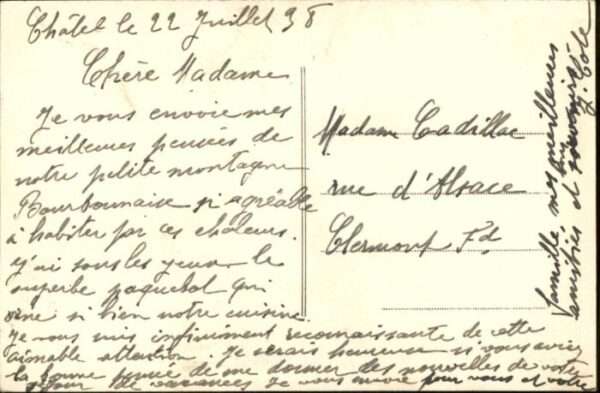 Châtel le 22 Juillet 38
Chère Madame
Je vous envoie mes
meilleures pensées de
notre petite montagne
Bourbonnaise si agréable
à habiter par ces chaleurs.
j'ai sous les yeux le
superbe paquebot qui
orne si bien notre cuisine.
Je vous suis infiniment reconnaissante de cette
aimable attention. Je serais heureuse si vous aviez
la bonne pensée de me donner des nouvelles de votre
séjour de vacances Je vous envoie pour vous et votre
famille mes meilleures
amitiés et souvenirs
J. Cote
Madame Cadillac
rue d'Alsace
Clermont Fd